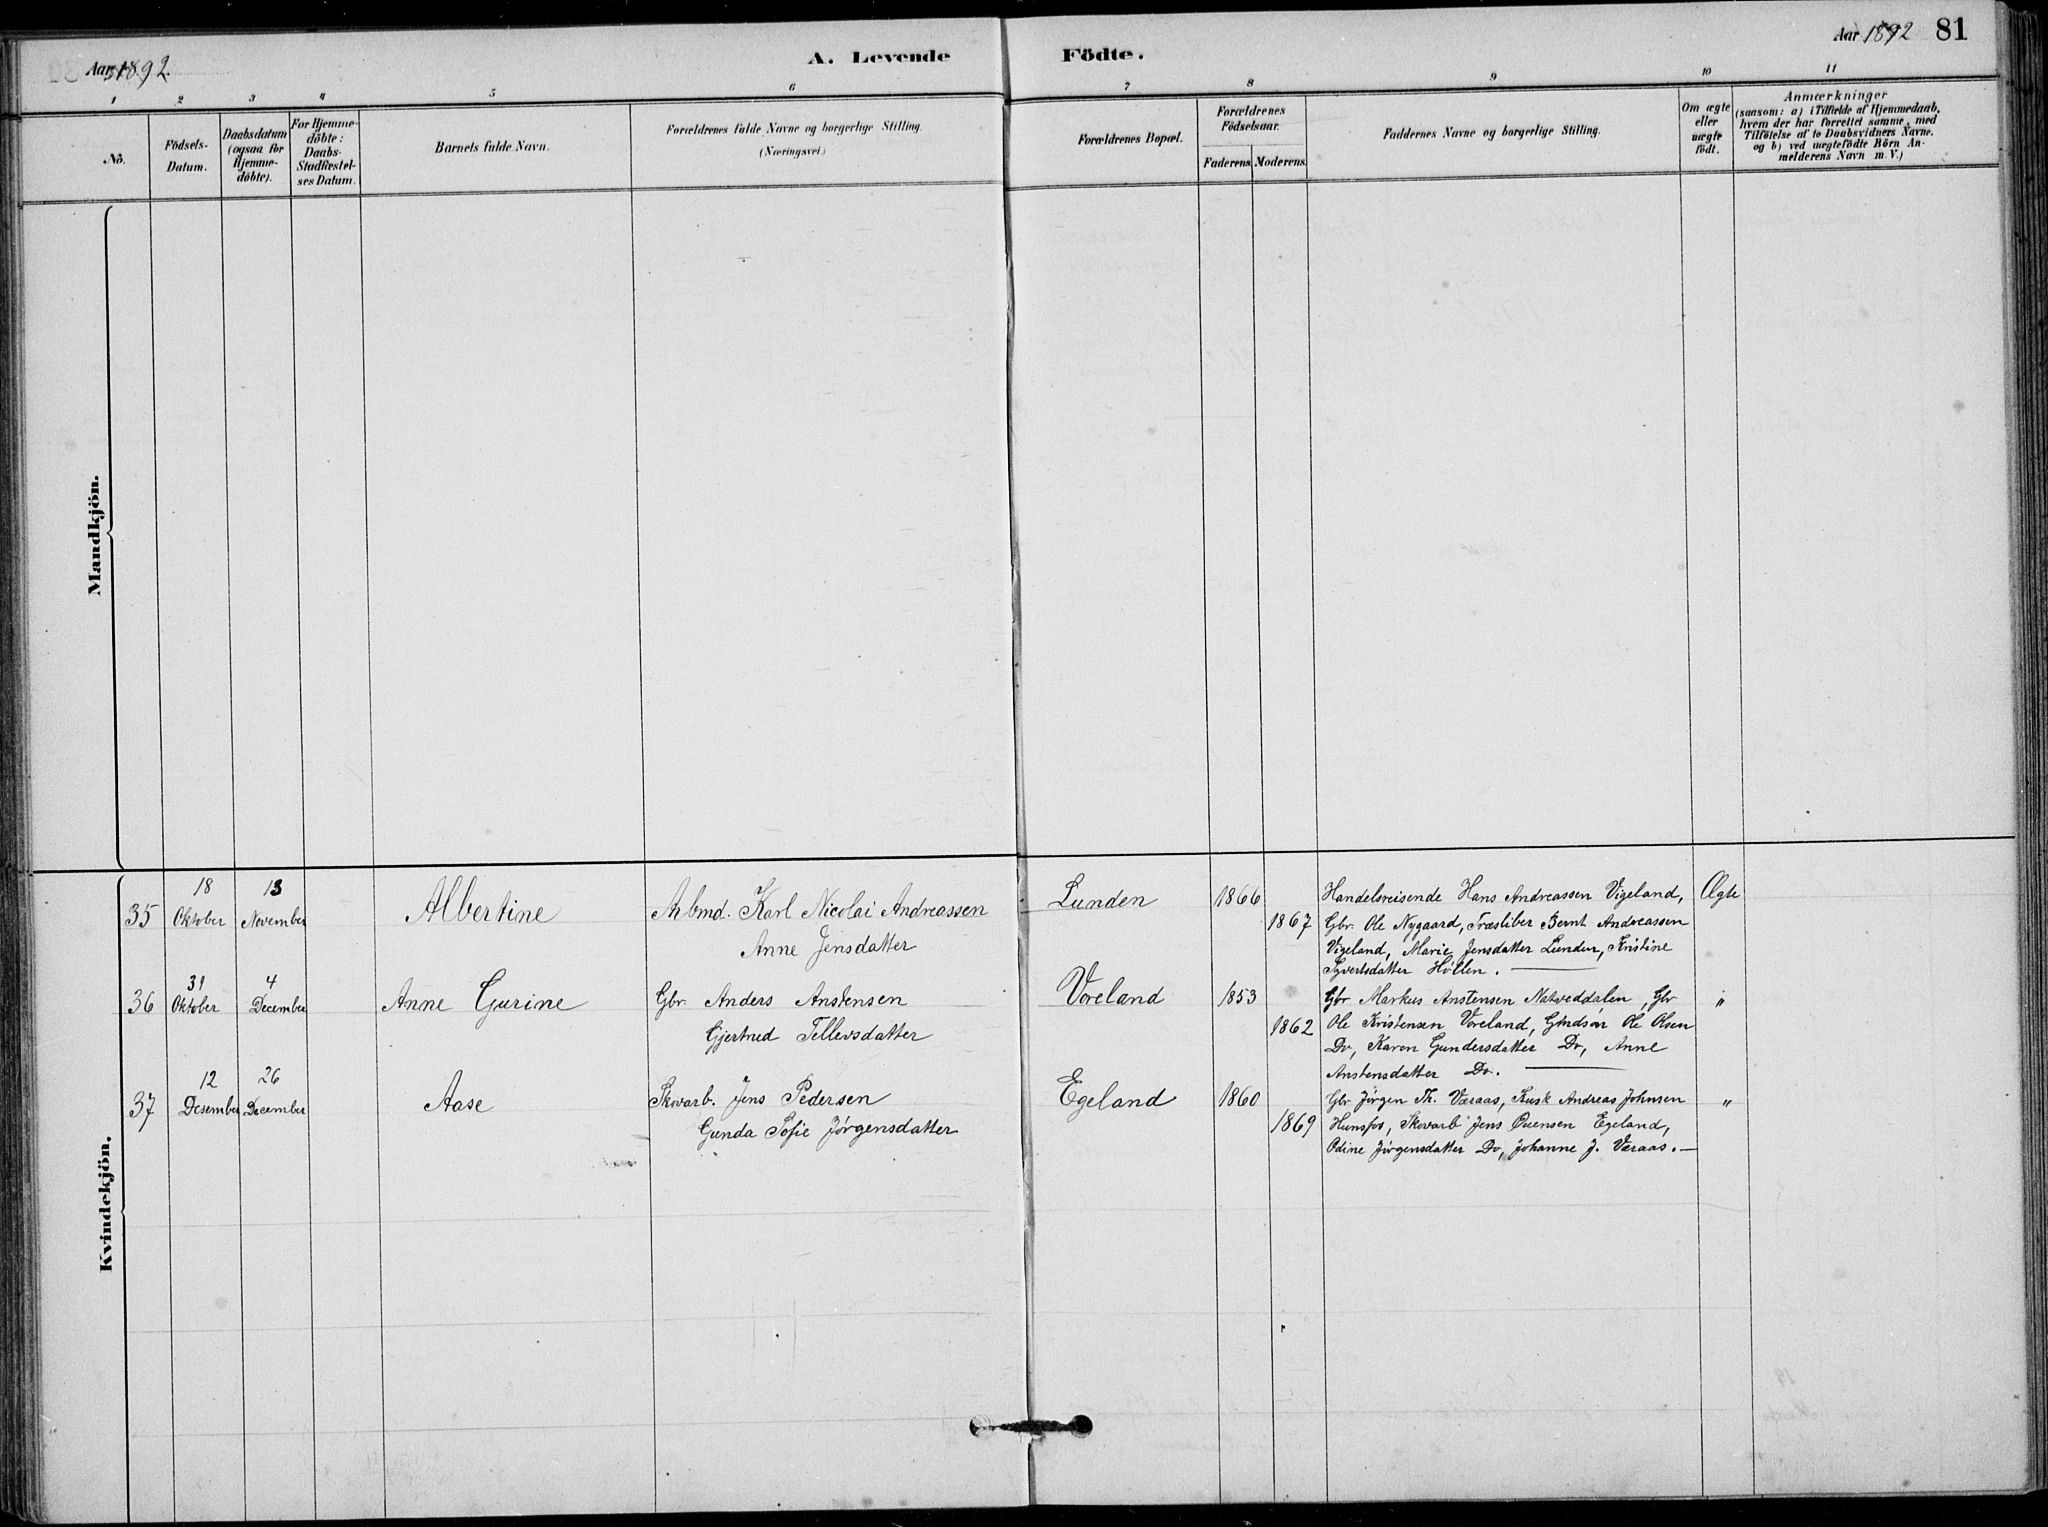 Aar 1892.
A. Levende Födte.
Aar 1892
81
1 2 3 4 5 6 7 8 9 10 11
No.
Födsels-
Datum.
Daabsdatum
(ogsaa for
Hjemme-
döbte).
For Hjemme-
döbte:
Daabs-
Stadfæstel-
ses Datum.
Barnets fulde Navn.
Forældrenes fulde Navne og borgerlige Stilling.
(Næringsvei.)
Forældrenes Bopæl.
Forældrenes
Födselsaar.
Faderens. Moderens.
Faddernes Navne og borgerlige Stilling.
Om ægte
eller
uægte
födt.
Anmærkninger
(saasom: a) i Tilfælde af Hjemmedaab,
hvem der har forrettet samme, med
Tilföielse af to Daabsvidners Navne.
og b) ved uægtefödte Börn An-
melderens Navn m. V.)
Mandkjön.
Kvindekjön.
35
18
Oktober
13
November
Albertine
Arbmd. Karl Nicolai Andreassen
Anne Jensdatter
Lunden
1866
1867
Handelsreisende Hans Andreassen Vigeland,
Gbr. Ole Nygaard, Træsliber Bernt Andreassen
Vigeland, Marie Jensdatter Lunden, Kristine
Syvertsdatter Høllen.
Ægte
36
31
Oktober
4
December
Anne Gurine
Gbr. Anders Anstensen
Gjertrud Tellevsdatter
Voreland
1853
1862
Gbr Markus Anstensen Natveddalen, Gbr
Ole Kristensen Voreland, Grdsøn Ole Olsen
Do, Karen Gundersdatter Do, Anne
Anstensdatter Do.
"
37
12
Desember
26
December
Aase
Skovarb. Jens Pedersen
Gunda Sofie Jørgensdatter
Egeland
1860
1869
Gbr Jørgen Th. Væraas, Kusk Andreas Johnsen
Hunsfos, Skovarb Jens Ouensen Egeland,
Odine Jørgensdatter Do, Johanne J. Væraas.
"